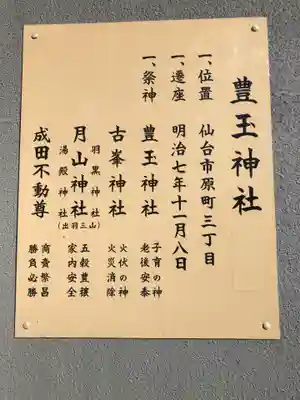 豊玉神社
一、位置 仙台市原町三丁目
一、遷座 明治七年十一月八日
一、祭神 豊玉神社 子育の神
老後安泰
古峯神社 火伏の神
火災消除
羽黒神社
月山神社(出羽三山) 五穀豊穣
湯殿神社 家内安全
成田不動尊 商売繁昌
勝負必勝